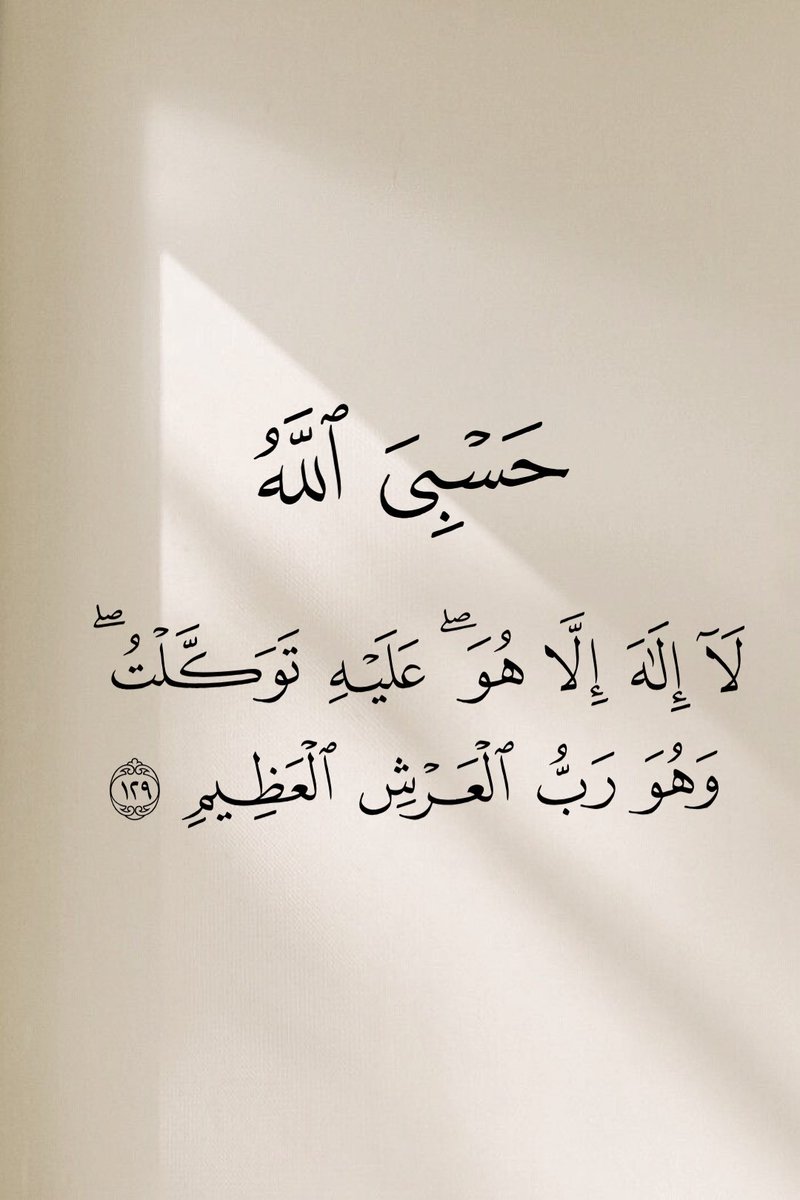 حَسْبِىَ ٱللَّهُ
لَآ إِلَٰهَ إِلَّا هُوَ ۖ عَلَيْهِ تَوَكَّلْتُ ۖ
وَهُوَ رَبُّ ٱلْعَرْشِ ٱلْعَظِيمِ ١٢٩